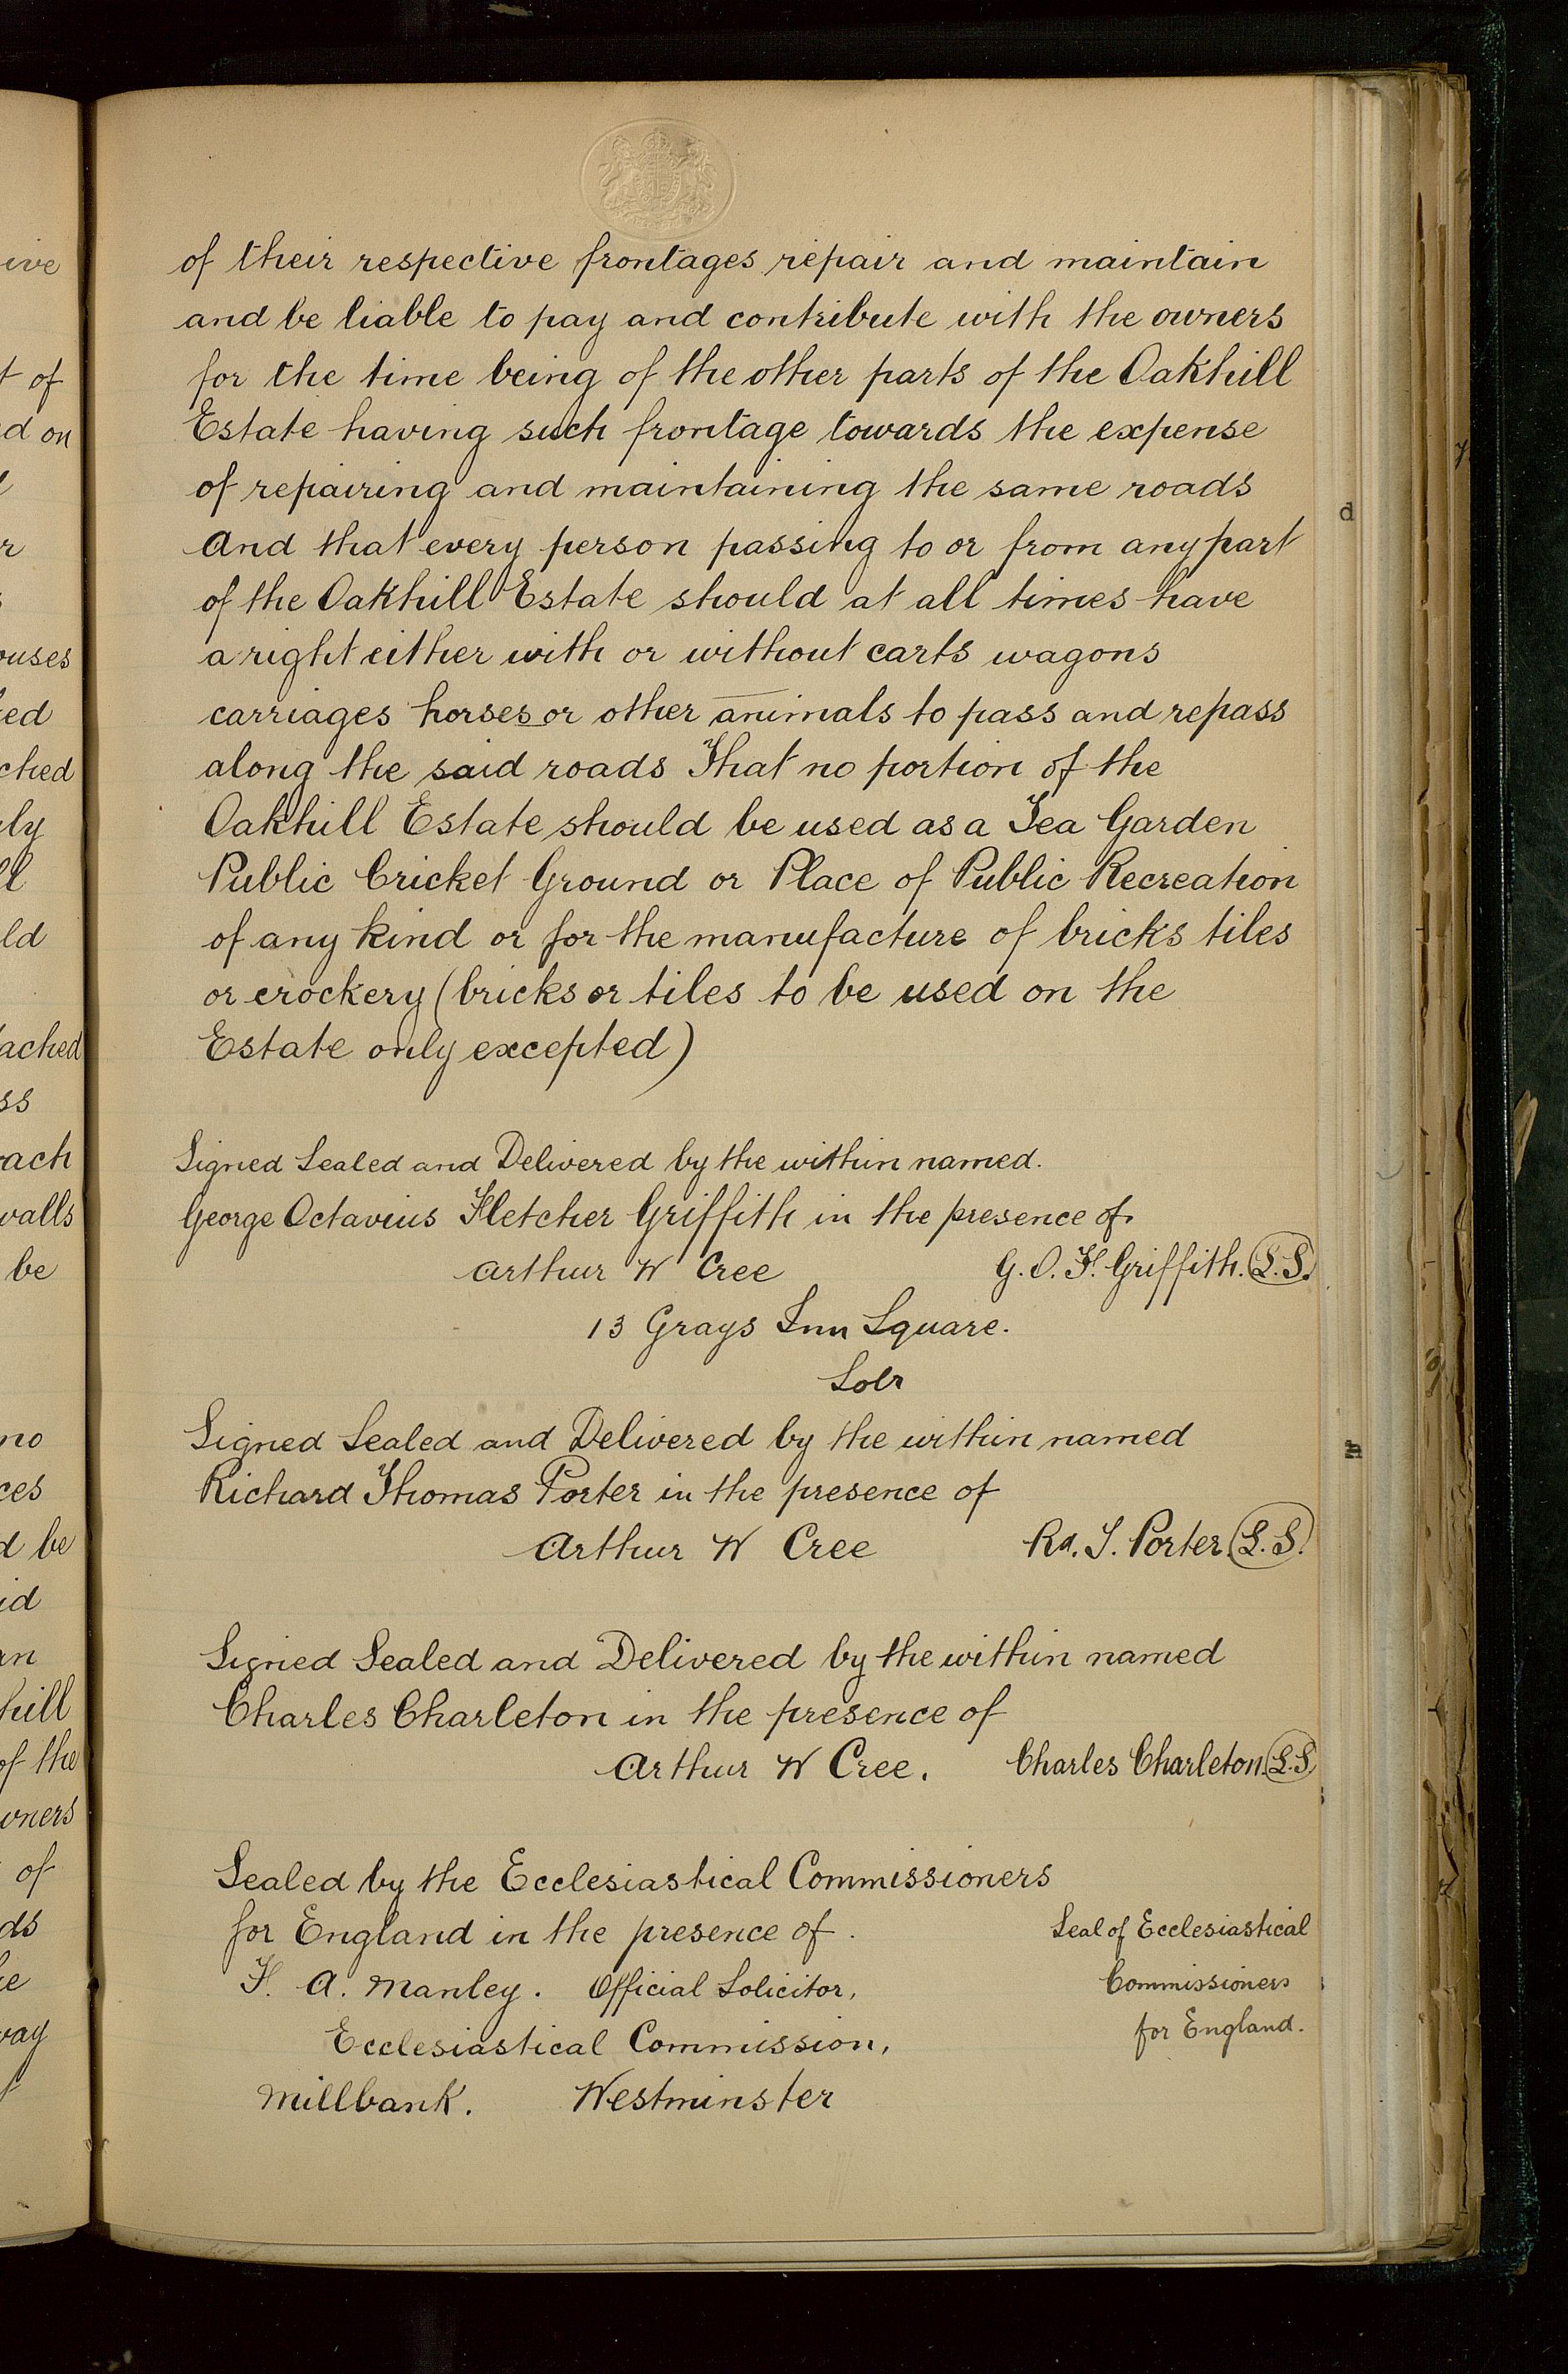 of their respective frontages repair and maintain
and be liable to pay and contribute with the owners
for the time being of the other parts of the Oakhill
Estate having such frontage towards the expense
of repairing and maintaining the same roads
And that every person passing to or from any part
of the Oakhill Estate should at all times have
a right either with or without carts wagons
carriages horses or other animals to pass and repass
along the said roads That no portion of the
Oakhill Estate should be used as a Tea Garden
Public Cricket Ground or Place of Public Recreation
of any kind or for the manufacture of bricks tiles
or crockery (bricks or tiles to be used on the
Estate only excepted)
Signed Sealed and Delivered by the within named.
George Octavius Fletcher Griffith in the presence of.
Arthur W Cree G. O. F. Griffith. L.S.
13 Grays Inn Square.
Solr
Signed Sealed and Delivered by the within named
Richard Thomas Porter in the presence of
Arthur W Cree Rd. T. Porter. L.S.
Signed Sealed and Delivered by the within named
Charles Charleton in the presence of
Arthur W Cree. Charles Charleton. L.S.
Sealed by the Ecclesiastical Commissioners
for England in the presence of.
F. A. Manley. Official Solicitor,
Ecclesiastical Commission,
Millbank. Westminster
Seal of Ecclesiastical
Commissioners
for England.
ive
t of
d on
r
ouses
ked
ched
ly
ll
ld
tached
ss
each
walls
be
no
ces
d be
id
an
hill
of the
wners
of
ds
he
way
d